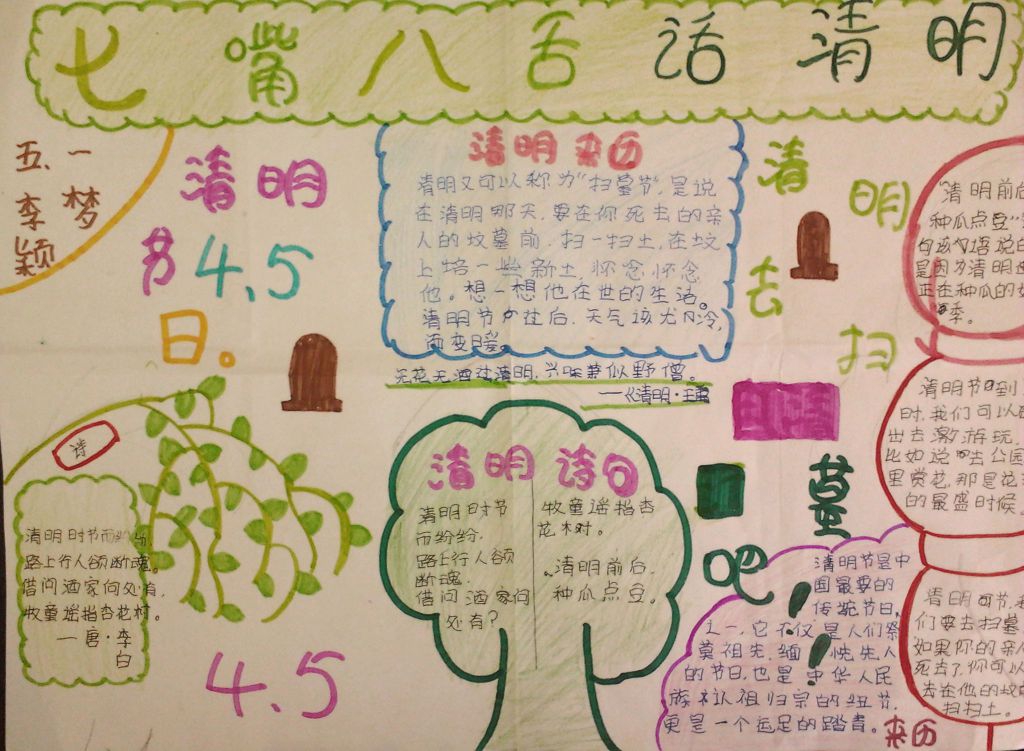 七嘴八舌话清明
五、一
李梦
颖
清明
节4.5
日。
清明来历
清明又可以称为“扫墓节”,是说
在清明那天,要在你死去的亲
人的坟墓前,扫一扫土,在坟
上培一些新土,怀念怀念
他。想一想他在世的生活。
清明节 往后,天气该尤 冷,
变日暖。
无花无酒过清明,兴味萧似野僧。
——《清明·王
清明
去扫
墓
吧!!!
诗
清明时节雨纷纷
路上行人欲断魂。
借问酒家何处有,
牧童遥指杏花村。
—唐·李
白
4.5
清明诗句
清明时节
雨纷纷,
路上行人欲
断魂,
借问酒家何
处有?
牧童遥指杏
花村。
清明前后,
种瓜点豆。
“清明前后
种瓜点豆”
句谚语说
是因为清明
正在种瓜的
季。
清明节 到
时,我们可以
出去 游玩,
比如说 去公园
里赏花,那是花
的最盛时候
清明 节,我
们要去扫墓
如果你的亲人
死去了,你可以
去在他的坟
扫扫土。
清明节是中
国最要的
传统节日,
之一,它不仅是人们祭
奠祖先,缅 先人
的节日,也是中华人民
族 认祖归宗的纽节,
更是一个远足的踏青。
来历